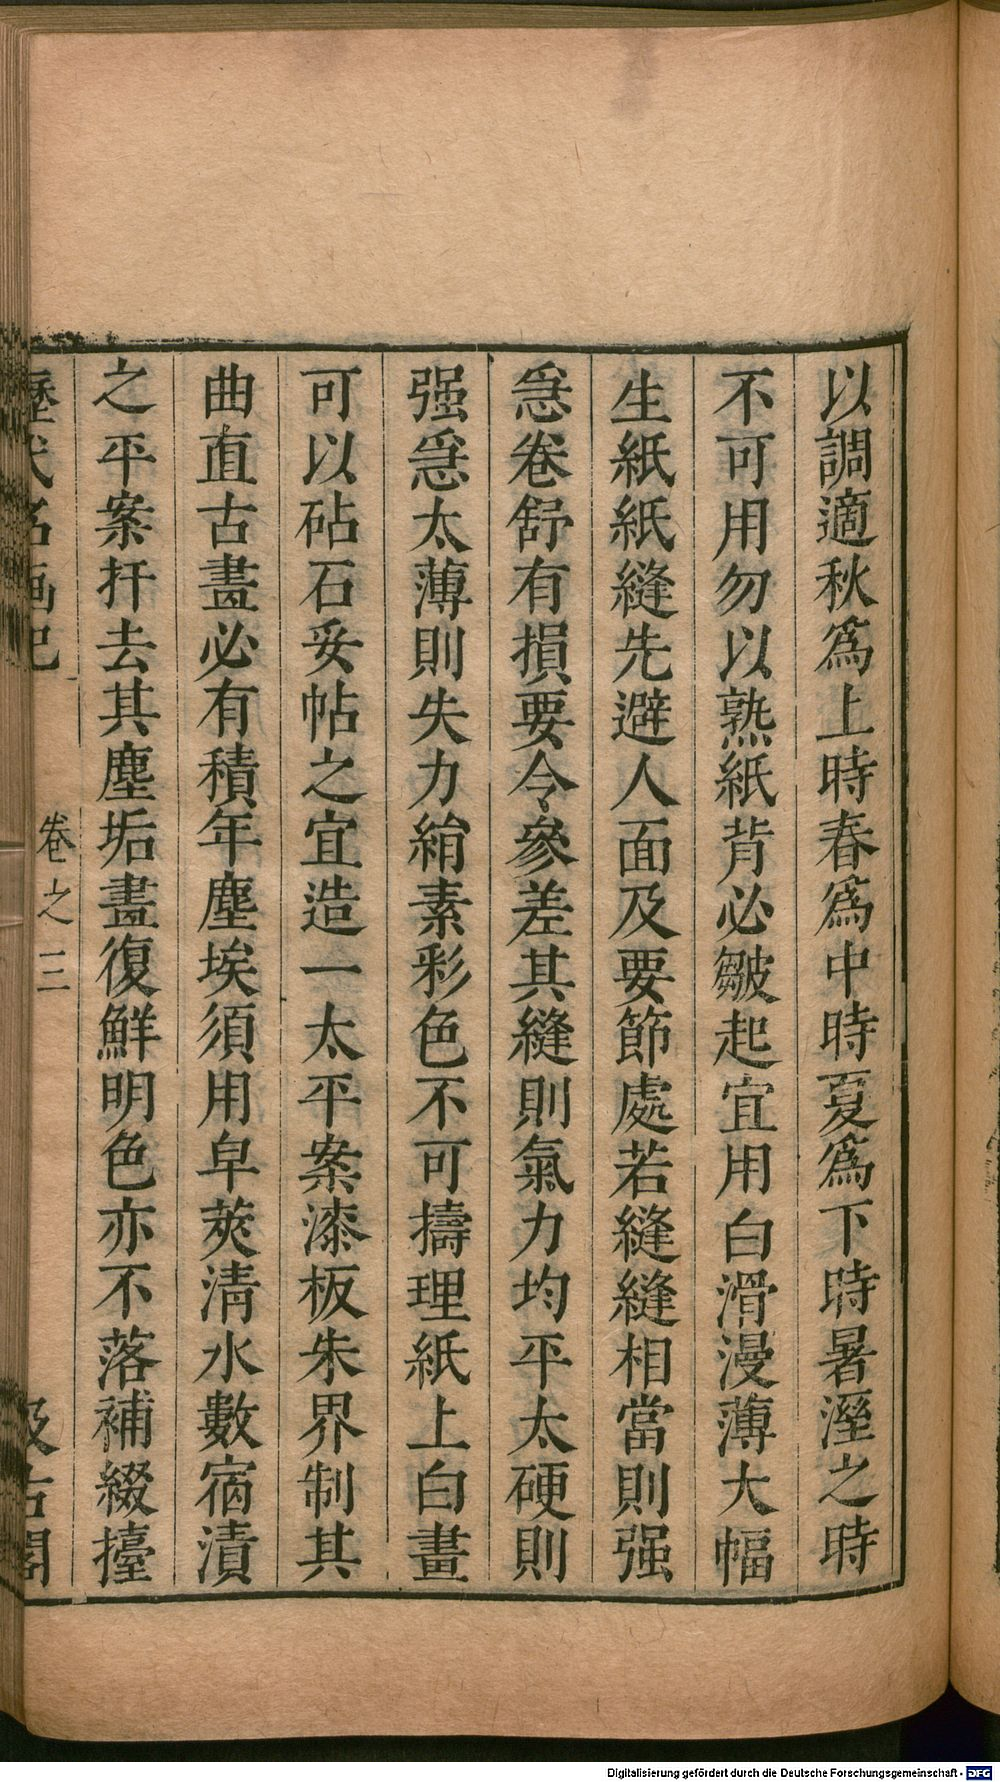 以調適秋爲上時春爲中時夏爲下時暑溼之時
不可用勿以熟紙背必皺起宜用白滑漫薄大幅
生紙紙縫先避人面及要節處若縫縫相當則强
急卷舒有損要令參差其縫則氣力均平太硬則
强急太薄則失力絹素彩色不可擣理紙上白畫
可以砧石妥帖之宜造一太平案漆板朱界制其
曲直古畫必有積年塵埃須用皁莢清水數宿漬
之平案扞去其塵垢畫復鮮明色亦不落補綴擡
歷代名畫記 卷之三 汲古閣
Digitalisierung gefördert durch die Deutsche Forschungsgemeinschaft - DFG